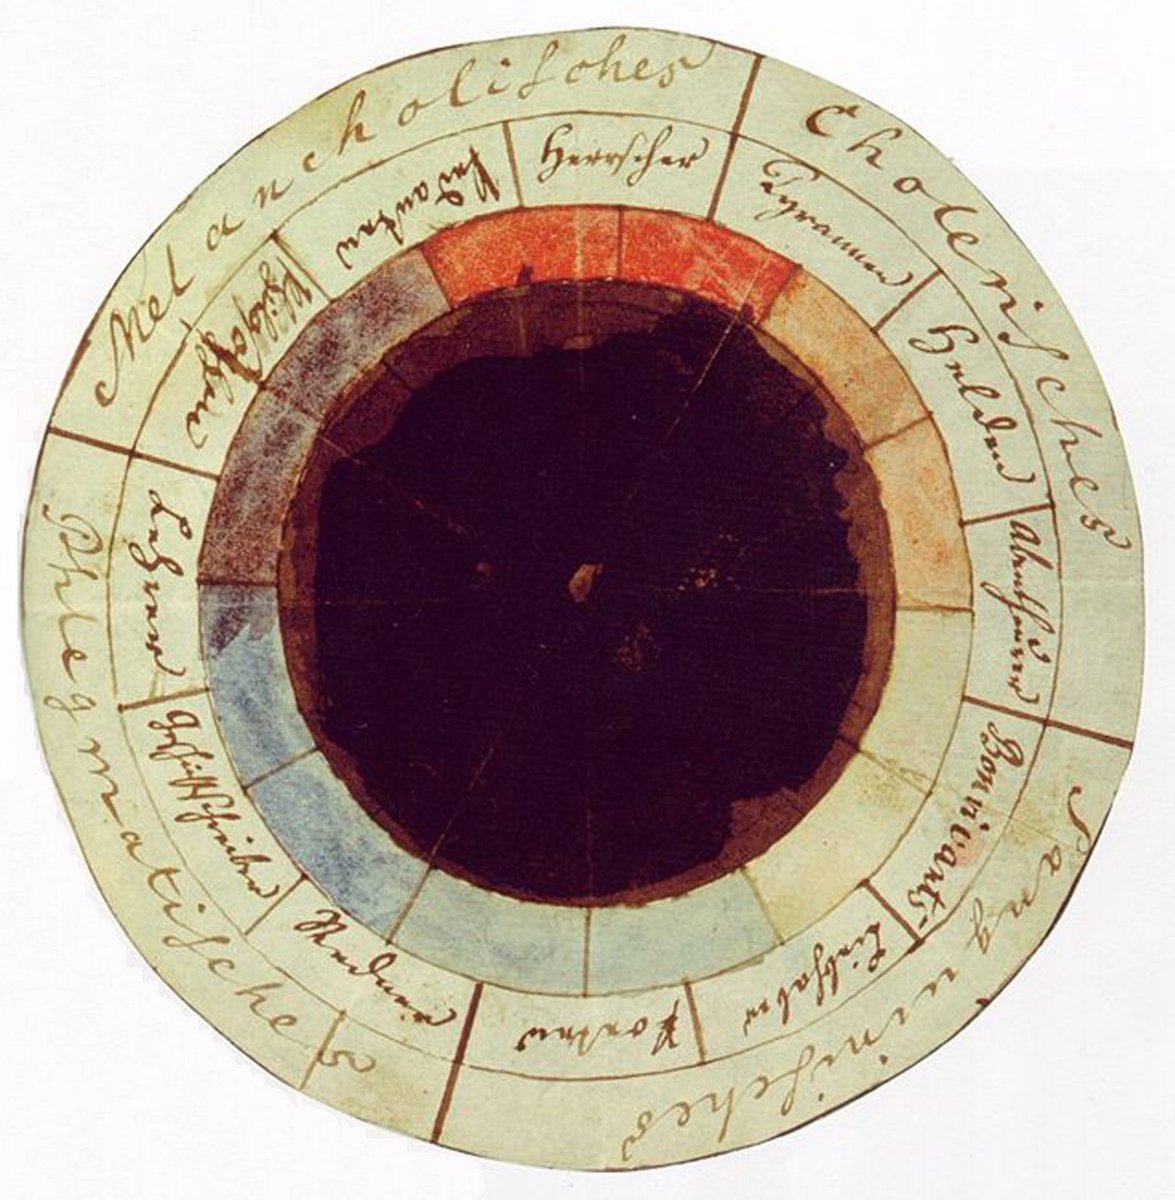 Cholerisches
Melancholisches
Phlegmatisches
Sanguinisches
Tyrannen
Helden
Abentheurer
Bonnivants
Liebhaber
Poeten
Redner
Geschichtschreiber
Lehrer
Philosophen
Pedanten
Herrscher